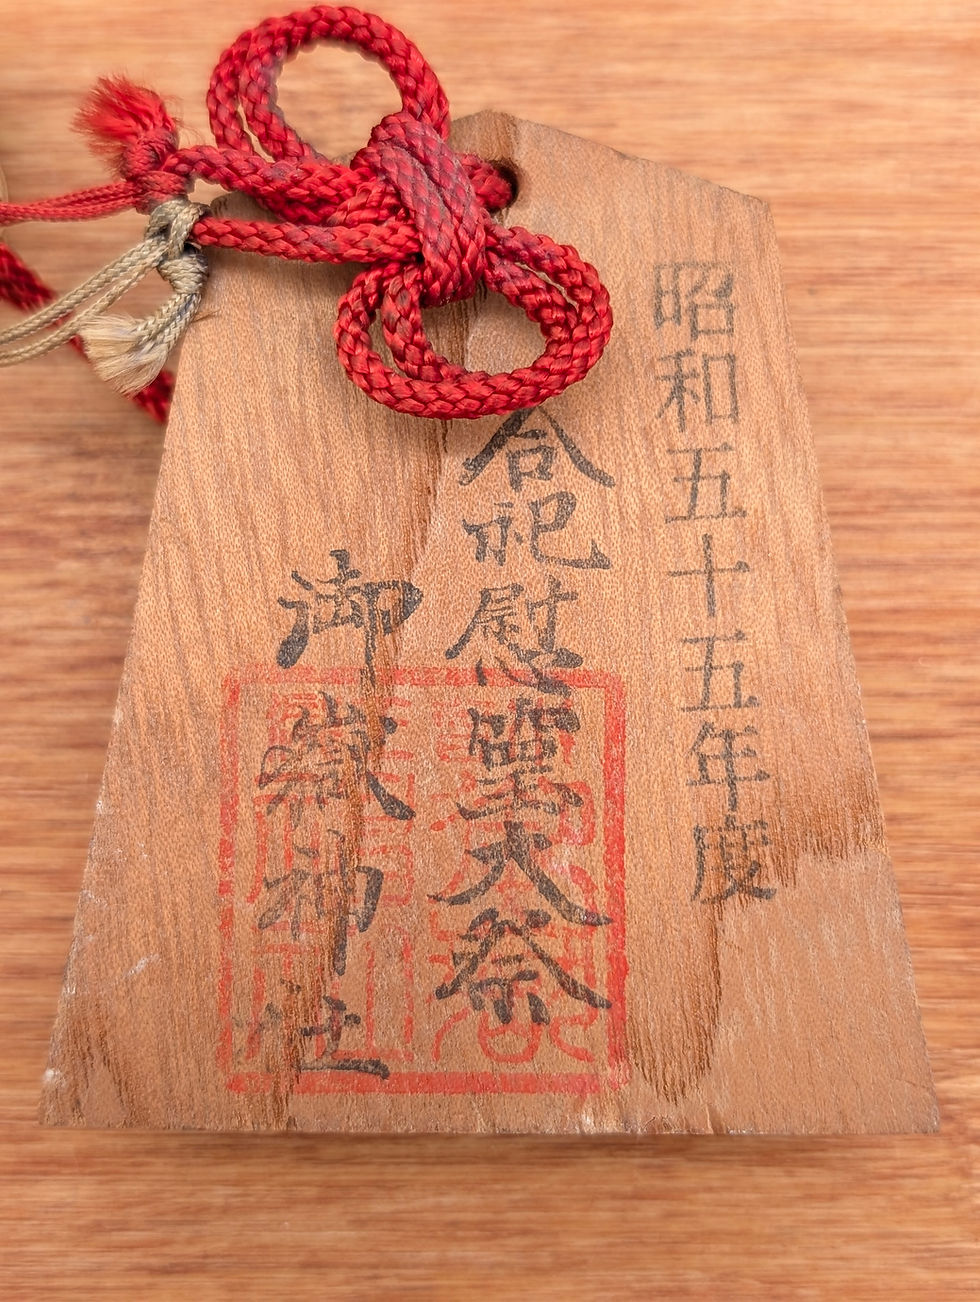 昭和五十五年度
合祀慰霊大祭
御嶽神社